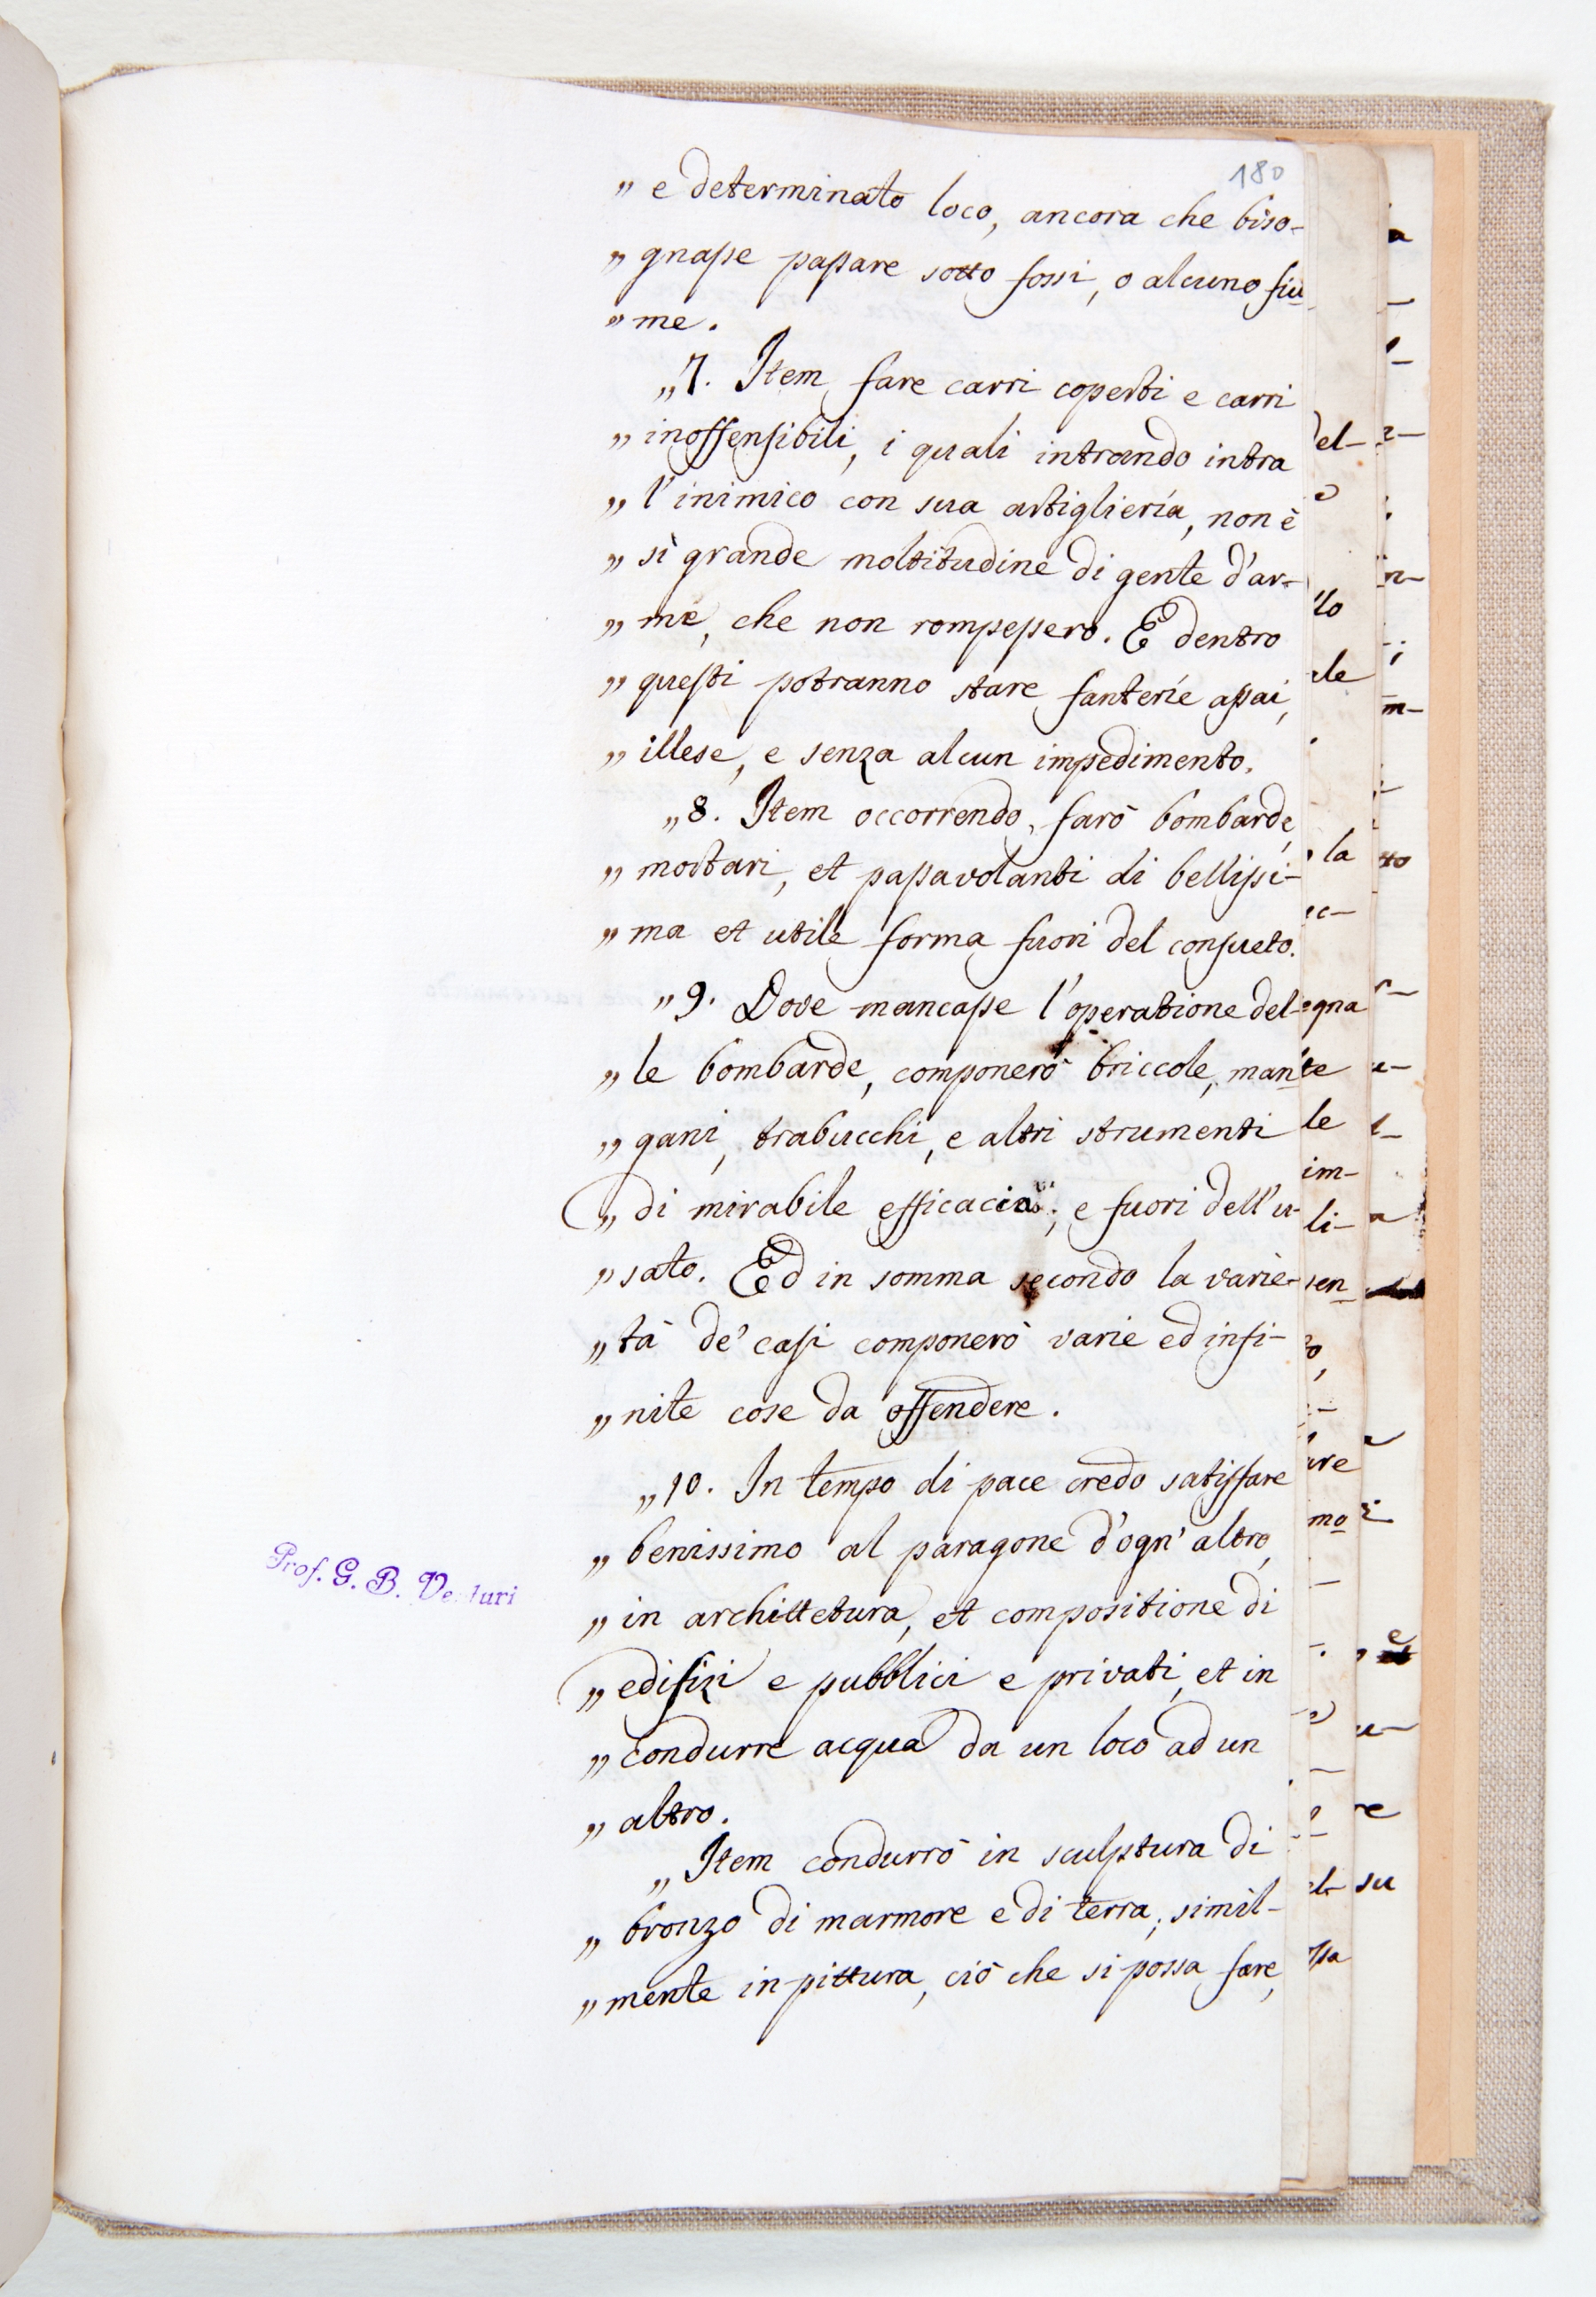 180
„ e determinato loco, ancora che biso-
„ gnasse passare sotto fossi, o alcuno fiu
„ me.
„ 7. Item fare carri coperti e carri
„ inoffensibili, i quali intrando intra
„ l'inimico con sua artiglieria, non è
„ sì grande moltitudine di gente d'ar-
„ me, che non rompessero. E dentro
„ questi potranno stare fanteríe assai,
„ illese, e senza alcun impedimento.
„ 8. Item occorrendo, farò bombarde,
„ mortari, et passavolanti di bellissi-
„ ma et utile forma fuori del consueto.
„ 9. Dove mancasse l'operatione del-
„ le bombarde, componerò briccole, man
„ gani, trabucchi, e altri strumenti
„ di mirabile efficacia; e fuori dell'u-
„ sato. Ed in somma secondo la varie-
„ tà de' casi componerò varie ed infi-
„ nite cose da offendere.
„ 10. In tempo di pace credo satisfare
„ benissimo al paragone d'ogn' altro,
„ in architettura, et compositione di
„ edifizi e pubblici e privati, et in
„ condurre acqua da un loco ad un
„ altro.
„ Item condurrò in sculptura di
„ bronzo di marmore e di terra; simil-
„ mente in pittura, ciò che si possa fare,
Prof. G. B. Venturi